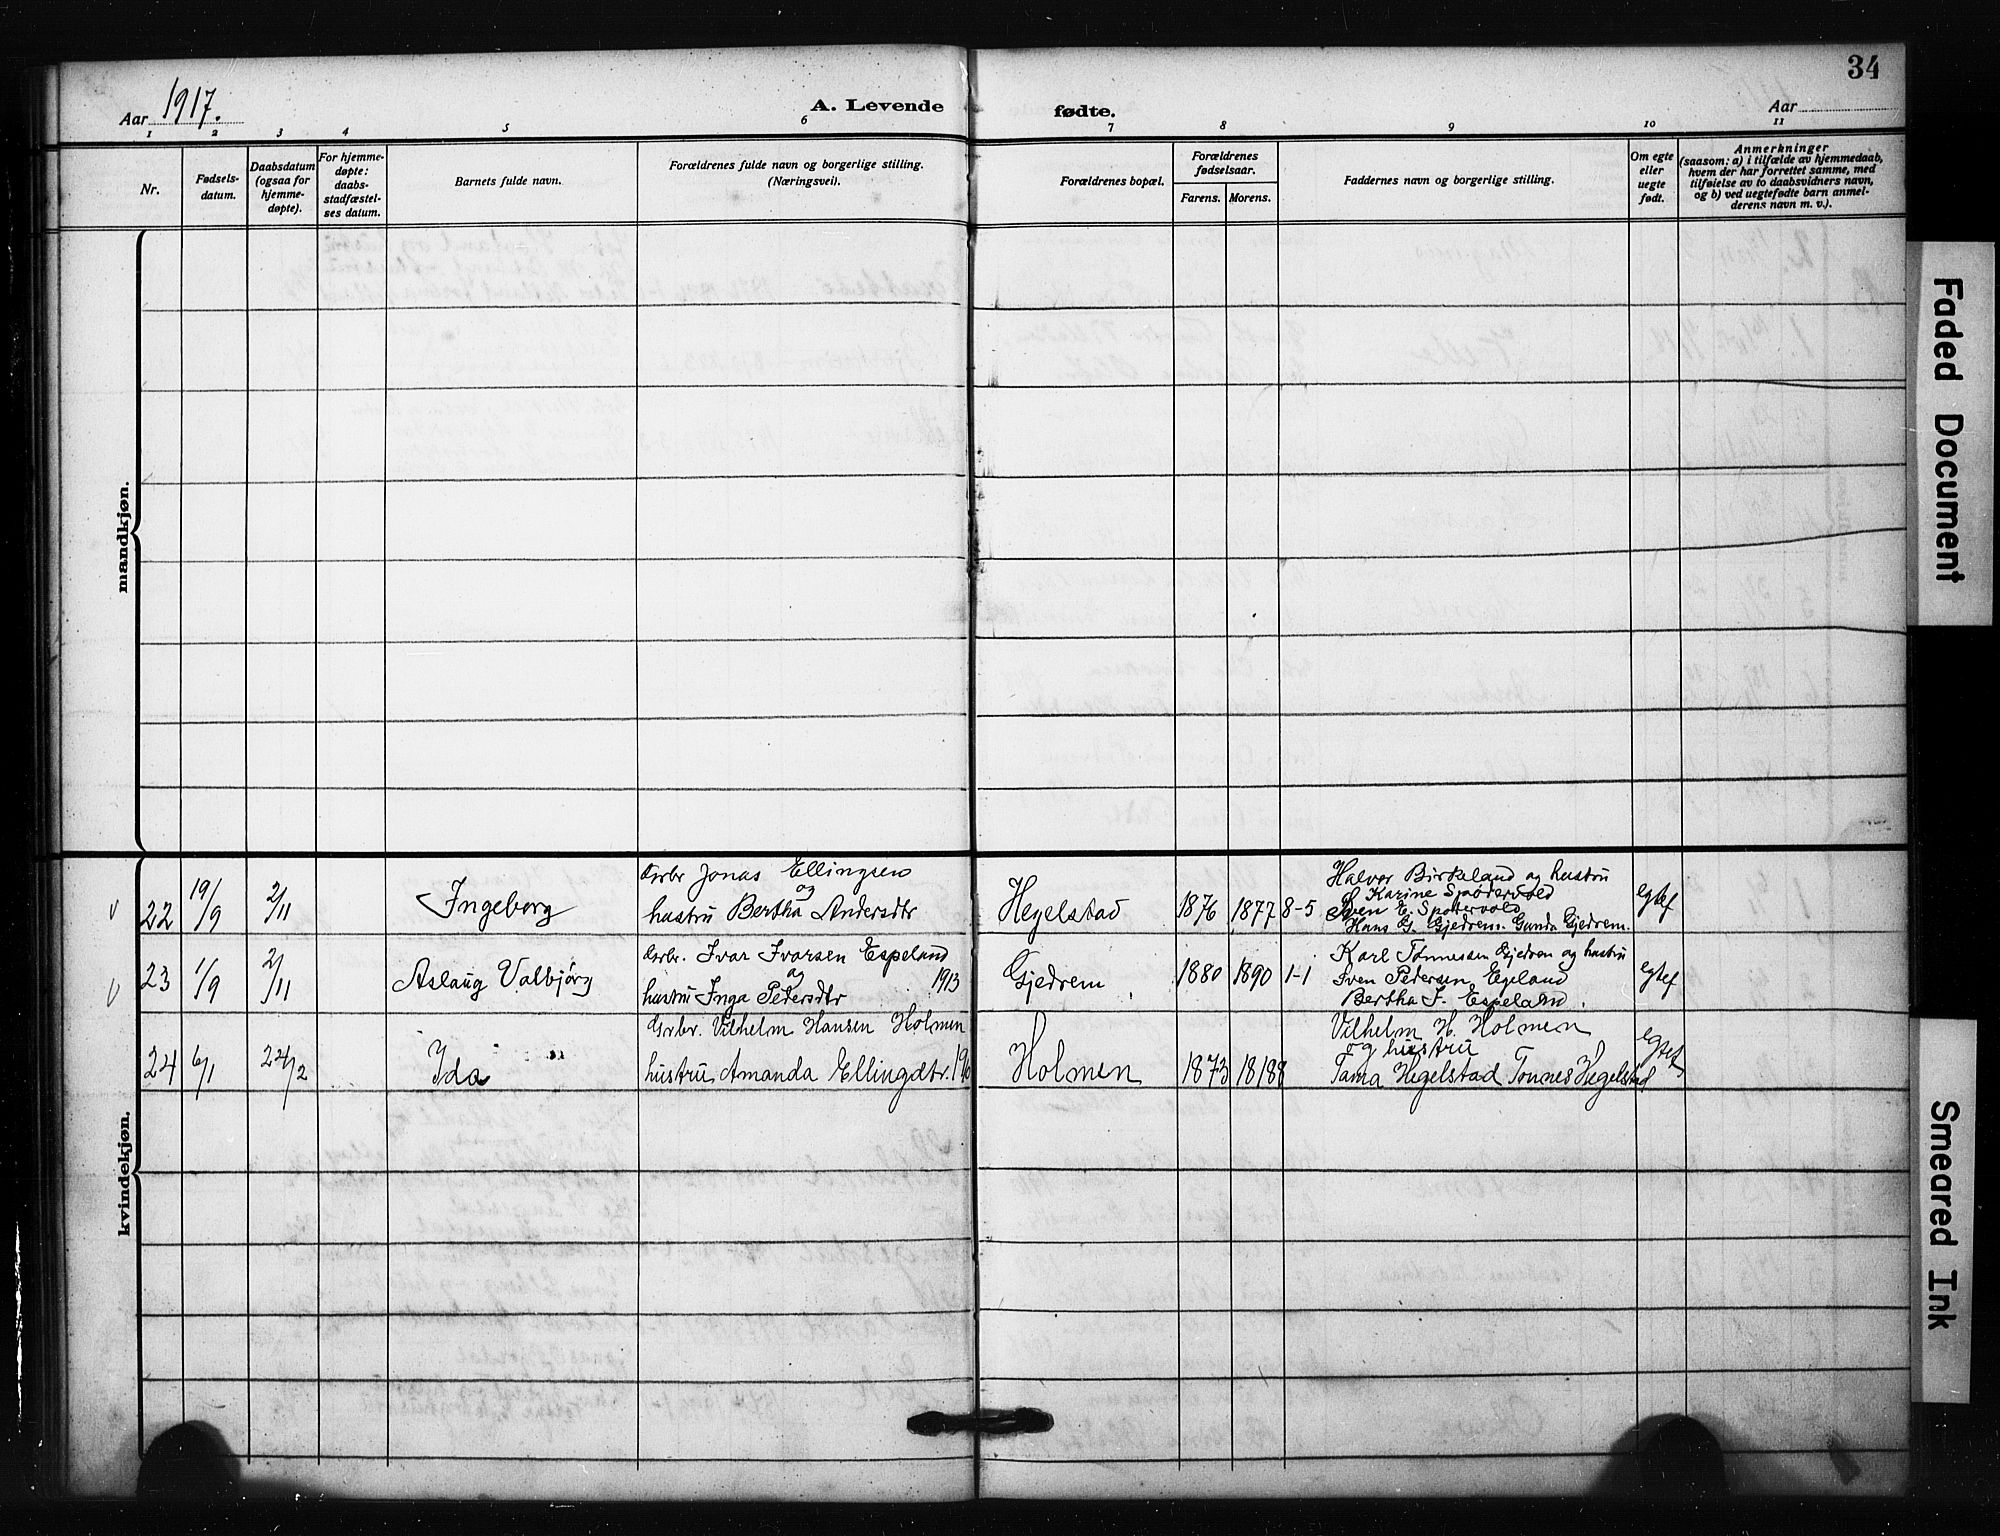 34
Aar 1917.
A. Levende fødte.
Aar
1 2 3 4 5 6 7 8 9 10 11
Nr.
Fødsels-
datum.
Daabsdatum
(ogsaa for
hjemme-
døpte).
For hjemme-
døpte:
daabs-
stadfæstel-
ses datum.
Barnets fulde navn.
Forældrenes fulde navn og borgerlige stilling.
(Næringsvei).
Forældrenes bopæl.
Forældrenes
fødselsaar.
Farens. Morens.
Faddernes navn og borgerlige stilling.
Om egte
eller
uegte
født.
Anmerkninger
(saasom: a) i tilfælde av hjemmedaab,
hvem der har forrettet samme, med
tilføielse av to daabsvidners navn,
og b) ved uegtefødte barn anmel-
derens navn m. v.).
mandkjøn.
kvindekjøn.
22 19/9 2/11 Ingeborg
Grbr Jonas Ellingsen
og
hustru Bertha Andersdtr
Hegelstad 1876 1877 8-5
Halvor Birkeland og hustru
Karine Spødervold
Sven E. Spødervold
Hans G. Gjedrem. Gunda Gjedrem.
egtef
23 1/9 2/11 Aslaug Valbjörg
Grbr. Ivar Ivarsen Espeland
og 1913
hustru Inga Petersdtr
Gjedrem 1880 1890 1-1
Karl Tønnesen Gjedrem og hustru
Sven Pedersen Egeland
Bertha J. Espeland.
egtef
24 6/1 24/2 Ida
Grbr. Vilhelm Hansen Holmen
hustru Amanda Ellingsdtr.
Holmen 1873 18188
Vilhelm H. Holmen
og hustru
Tama Hegelstad Tonnes Hegelstad
egtef
Faded Document
Smeared Ink